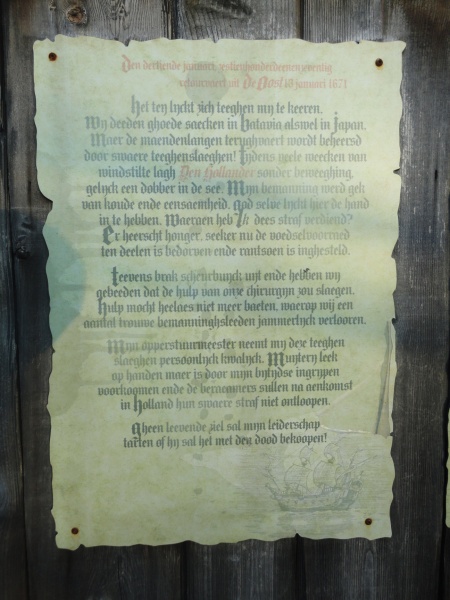 Den dertiende januari, zestienhonderdeenenzeventig
retourvaert uit De Oost 13 januari 1671
Het ten lyckt zich teeghen my te keeren.
Wij deeden ghoede saecken in Batavia alswel in Japan.
Maer de maendenlangen terughvaert wordt beheersd
door swaere teeghenslaeghen! Tydens veele weecken van
windstilte lagh Den Hollander sonder beweeghing,
gelyck een dobber in de see. Myn bemanning werd gek
van koude ende eensaemheid. God selve lyckt hier de hand
in te hebben. Waeraen heb Ik dees straf verdiend?
Er heerscht honger, seeker nu de voedselvoorraed
ten deelen is bedorven ende rantsoen is inghesteld.
Teevens brak scheurbuyck uyt ende hebben wy
gebeeden dat de hulp van onze chirurgyn zou slaegen.
Hulp mocht heelaes niet meer baeten, waerop wij een
aantal trouwe bemanninghsleeden jammerlyck verlooren.
Myn opperstuurmeester neemt my deze teeghen
slaeghen persoonlyck kwalyck. Muytery leek
op handen maer is door mijn bytydse ingrypen
voorkoomen ende de beraemers sullen na aenkomst
in Holland hun swaere straf niet ontloopen.
Gheen leevende ziel sal myn leiderschap
tarten of hy sal het met den dood bekoopen!